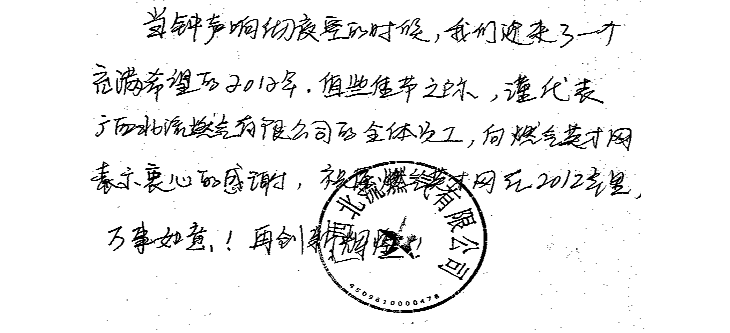 当钟声响彻夜空的时候，我们迎来了一个
充满希望的2012年．值此佳节之际，谨代表
广西北流燃气有限公司的全体员工，向燃气英才网
表示衷心的感谢，祝愿燃气英才网在2012年里，
万事如意,！再创新辉煌!
北流燃气有限公司
4509810000478